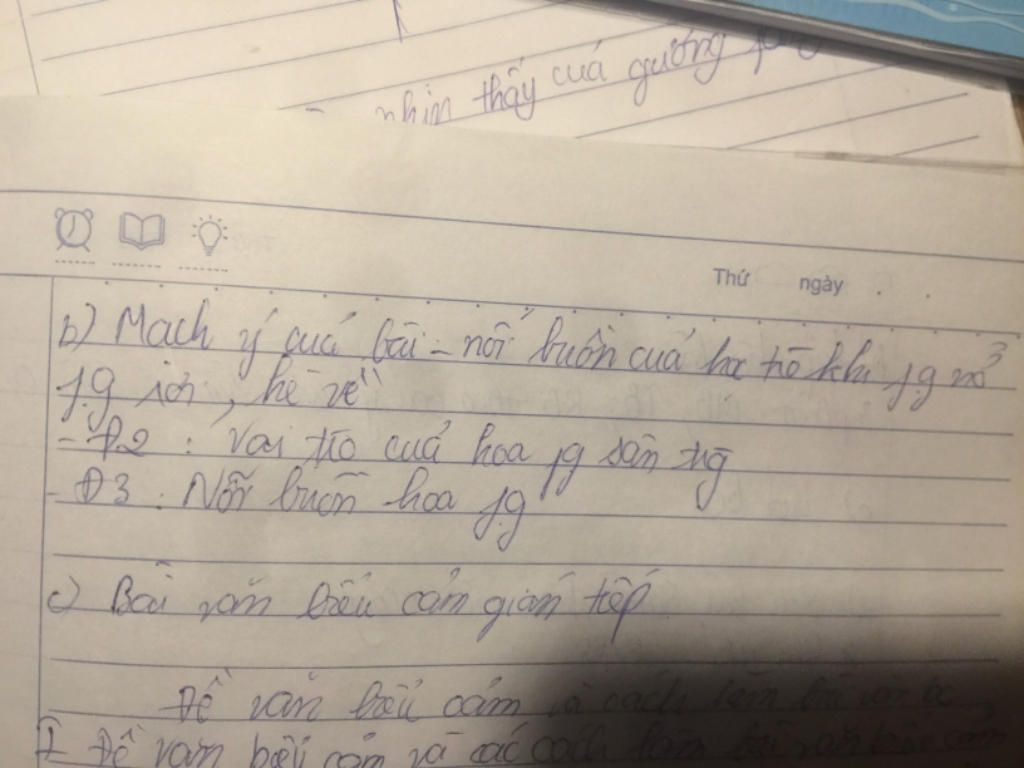 nhìn thấy của gương
Thứ ngày
b) Mạch ý của bài - nỗi buồn của học trò khi fg nở
fg rơi, hè về
- Đ2: Vai trò của hoa fg sân trg
- Đ3: Nỗi buồn hoa fg
c) Bài văn biểu cảm gián tiếp
Đề văn biểu cảm và cách làm bài văn bc
I Đề văn biểu cảm và các cách làm bài văn biểu cảm